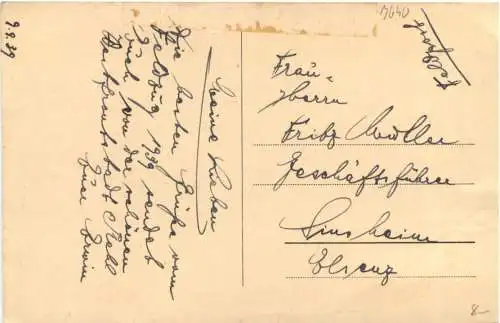 9.9.39
Meine Lieben
Die besten Grüße vom
Feldzug 1939 sendet
Euch von der schönen
Euer Erwin
19640
Feldpost
Frau
Herrn
Fritz Müller
Geschäftsführer
Sinsheim
Elsenz
8-